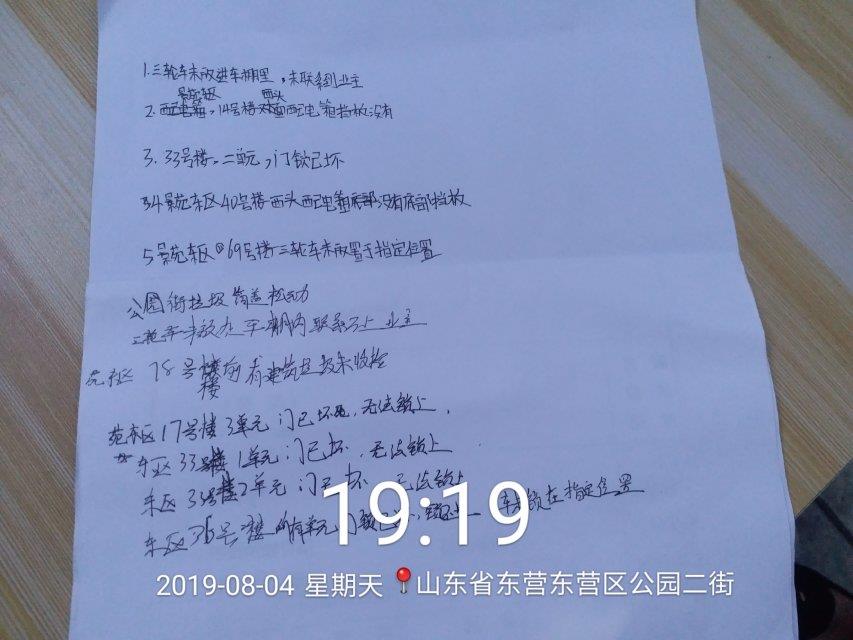 1.三轮车未放进车棚里，未联系到业主
景苑东区 西头
2.西配电箱，14号楼对面西配电箱挡板没有
3.33号楼，二单元，门锁已坏
4景苑东区40号楼西头西配电箱底部没有底部挡板
5景苑东区69号楼三轮车未放置于指定位置
公园街垃圾筒盖松动
三轮车未放在车棚内联系不上业主
苑东区 78号楼 有建筑垃圾未收捡
楼
苑东区17号楼3单元门已坏,无法锁上.
东区33号楼1单元门已坏 无法锁上
东区34号楼2单元门已坏 无法锁上
东区36号楼 所有单元门锁已 车未锁在指定位置
19:19
2019-08-04 星期天 山东省东营东营区公园二街